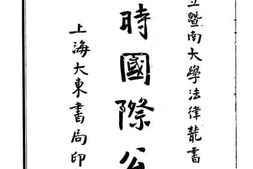 立暨南大學法律叢書
時國際公
上海大東書局印